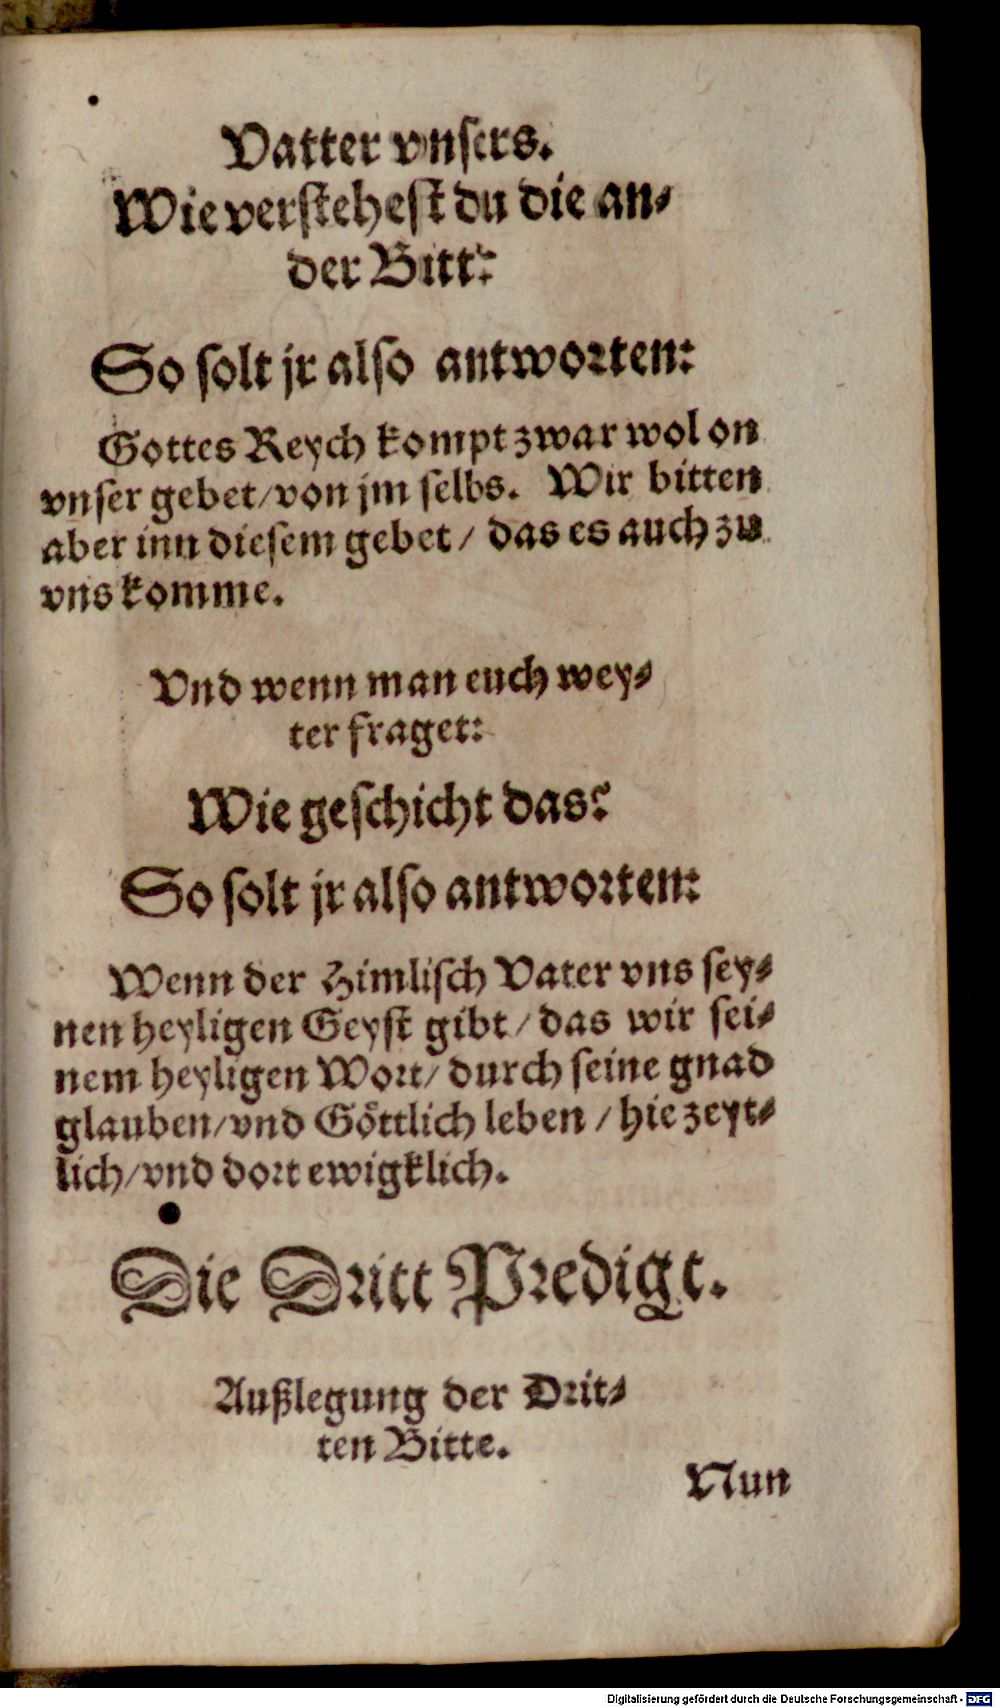 Vatter vnsers.
Wie verstehest du die an-
der Bitt?
So solt jr also antworten:
Gottes Reych kompt zwar wol on
vnser gebet/ von jm selbs. Wir bitten
aber inn diesem gebet/ das es auch zu
vns komme.
Vnd wenn man euch wey-
ter fraget:
Wie geschicht das?
So solt jr also antworten:
Wenn der Himlisch Vater vns sey-
nen heyligen Geyst gibt/ das wir sei-
nem heyligen Wort/ durch seine gnad
glauben/ vnd Göttlich leben/ hie zeyt-
lich/ vnd dort ewigklich.
Die Dritt Predigt.
Außlegung der Drit-
ten Bitte.
Nun
Digitalisierung gefördert durch die Deutsche Forschungsgemeinschaft - DFG